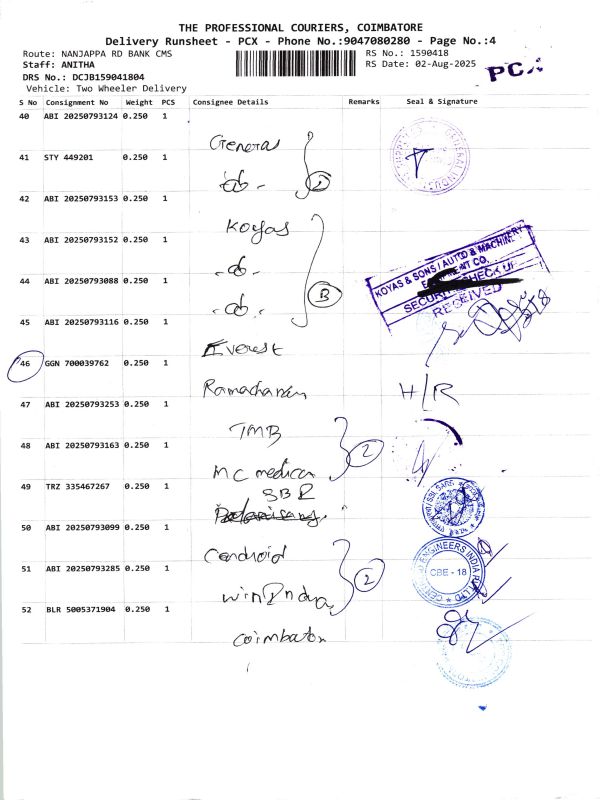 THE PROFESSIONAL COURIERS, COIMBATORE
Delivery Runsheet - PCX - Phone No.:9047080280 - Page No.:4
Route: NANJAPPA RD BANK CMS
RS No.: 1590418
Staff: ANITHA
RS Date: 02-Aug-2025
PCX
DRS No.: DCJB159041804
Vehicle: Two Wheeler Delivery
S No Consignment No Weight PCS Consignee Details Remarks Seal & Signature
40 ABI 20250793124 0.250 1
General
41 STY 449201 0.250 1
-do-
42 ABI 20250793153 0.250 1
Koyas
43 ABI 20250793152 0.250 1
-do-
44 ABI 20250793088 0.250 1
-do-
KOYAS & SONS / AUTO & MACHINERY
EQUIPMENT CO.
RECEIVED
45 ABI 20250793116 0.250 1
Everest
46 GGN 700039762 0.250 1
H/R
47 ABI 20250793253 0.250 1
TMB
2
48 ABI 20250793163 0.250 1
MC medical
49 TRZ 335467267 0.250 1
50 ABI 20250793099 0.250 1
2
51 ABI 20250793285 0.250 1
CBE - 18
52 BLR 5005371904 0.250 1